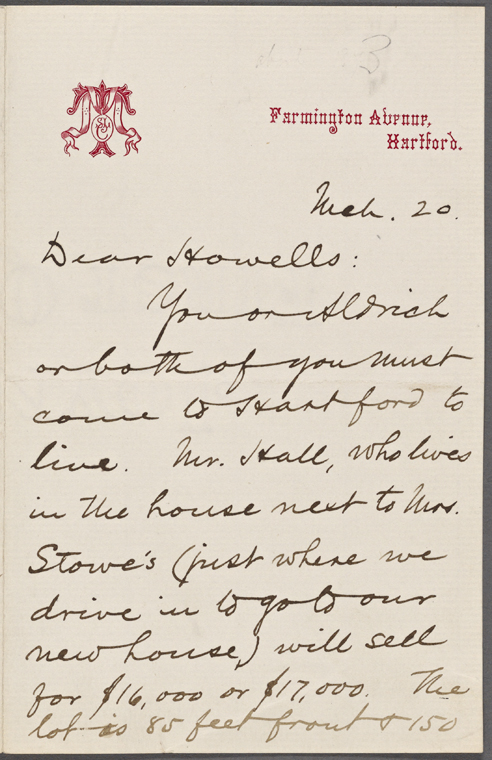 3
SLC
Farmington Avenue,
Hartford.
Mch. 20.
Dear Howells:
You or Aldrich
or both of you must
come to Hartford to
live. Mr. Hall, who lives
in the house next to Mrs.
Stowe's (just where we
drive in to go to our
new house,) will sell
for $16,000 or $17,000. The
lot is 85 feet front & 150